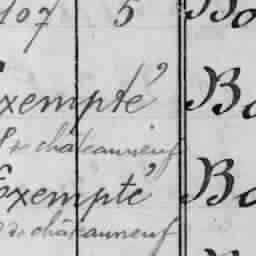 107 5 Bo
Exempté Bo
de châteauneuf
Exempté Bo
de châteauneuf